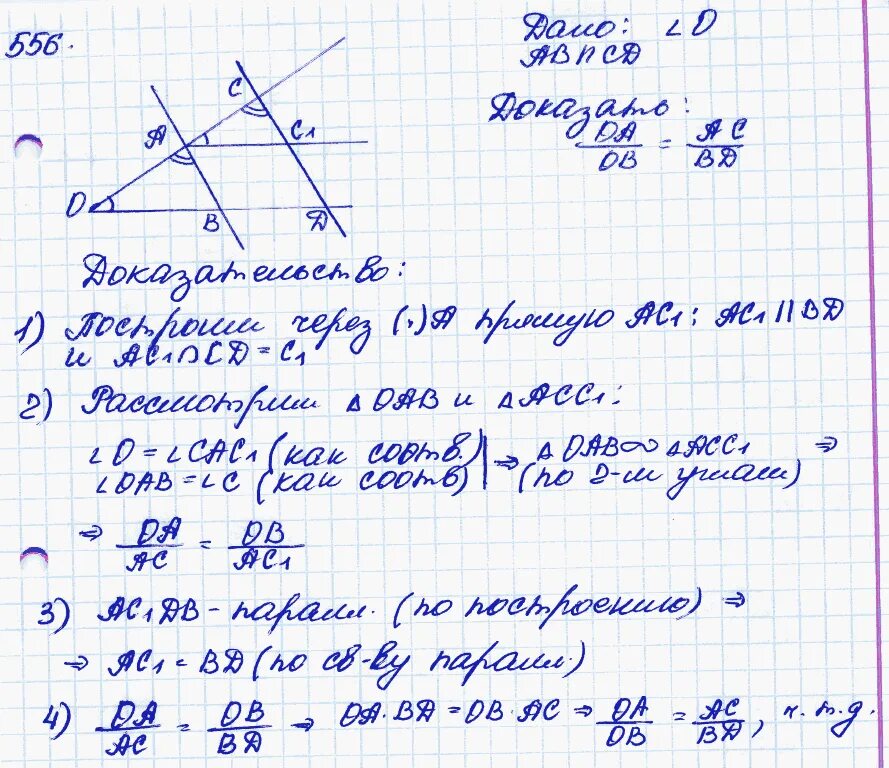 556.
Дано: ∠O
AB∩CD
Доказать:
OA/OB = AC/BD
C
A
C₁
O
B
D
Доказательство:
1) Построим через (·)A прямую AC₁: AC₁ || BD
и AC₁∩CD = C₁
2) Рассмотрим △OAB и △ACC₁:
∠O = ∠CAC₁ (как соотв.)
∠OAB = ∠C (как соотв) | ⇒ △OAB∞△ACC₁ ⇒
(по 2-м углам)
⇒ OA/AC = OB/AC₁
3) AC₁DB - паралл. (по построению) ⇒
⇒ AC₁ = BD (по св-ву паралл.)
4) OA/AC = OB/BD → OA·BD = OB·AC ⇒ OA/OB = AC/BD, ч.т.д.